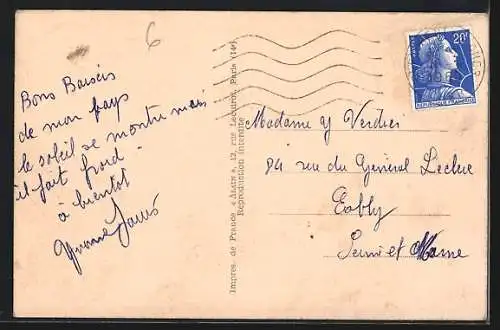 6
Bons Baisers
de mon pays
le soleil se montre mais
il fait froid
à bientôt
Yvonne
Impres. de France « ABAIN », 12, rue Lecuirot, Paris (14e)
Reproduction interdite
20F
REPUBLIQUE FRANÇAISE
Madame Y Verdier
84 rue du Général Leclerc
Esbly
Seine et Marne